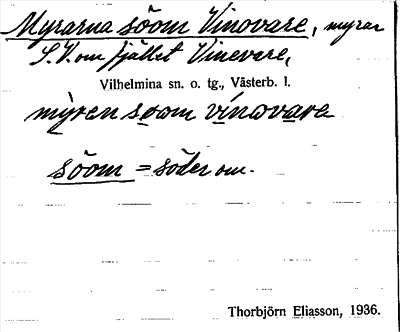 Myrarna söom Vinovare, myrar
S.V.om fjället Vinevare,
Vilhelmina sn. o. tg., Västerb. l.
mỳren sɷom vínɷvara
söom = söder om.
Thorbjörn Eliasson, 1936.